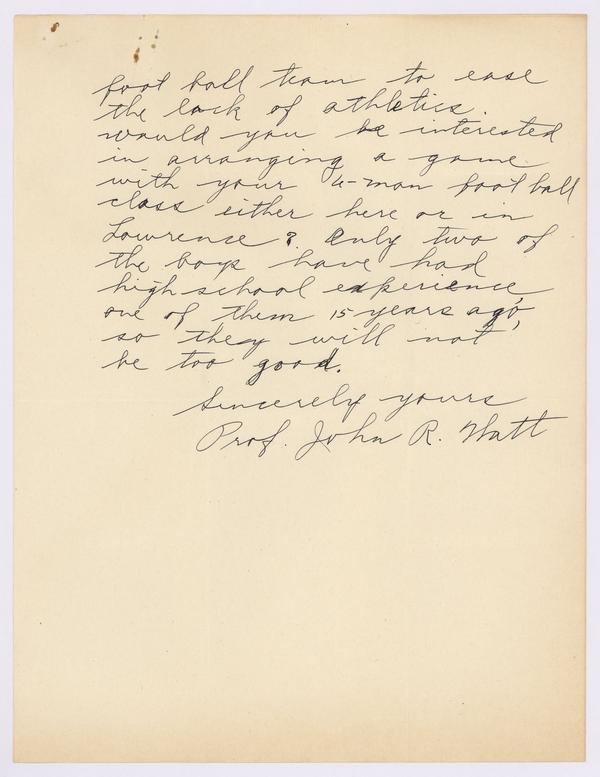 foot ball team to ease
the lack of athletics.
would you be interested
in arranging a game
with your 4-man foot ball
class either here or in
Lawrence? Only two of
the boys have had
high-school experience,
one of them 15 years ago,
so they will not
be too good.
Sincerely yours
Prof. John R. Watt